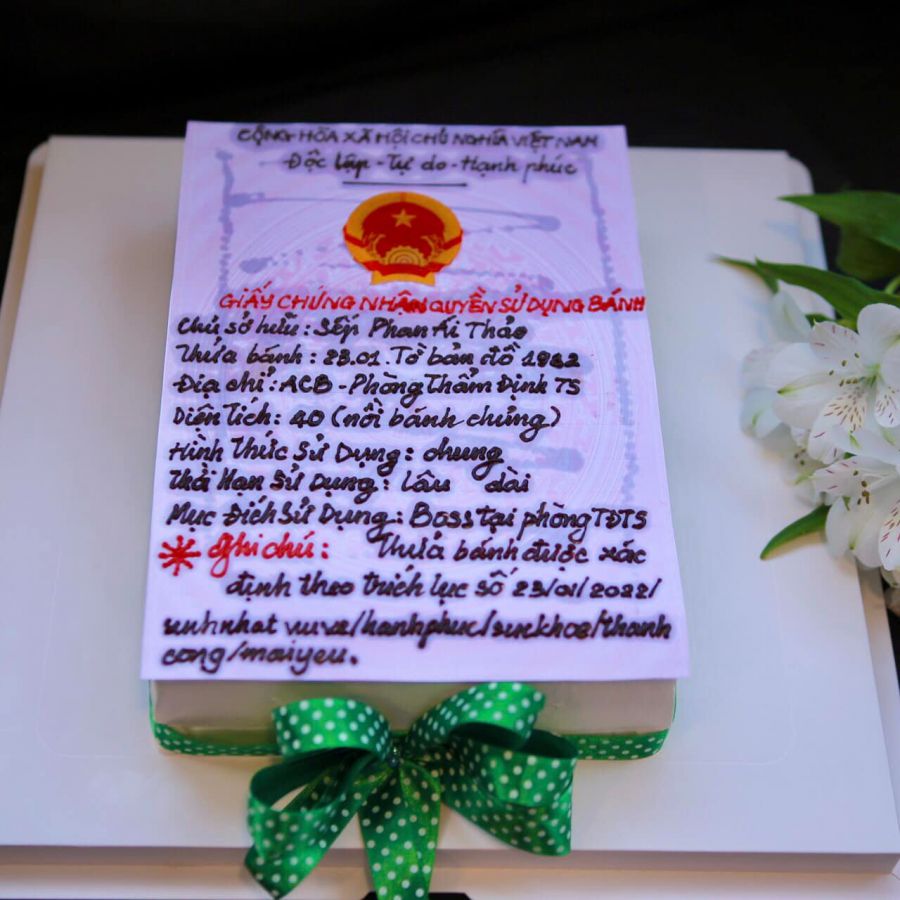 CỘNG HÒA XÃ HỘI CHỦ NGHĨA VIỆT NAM
Độc lập - Tự do - Hạnh phúc
GIẤY CHỨNG NHẬN QUYỀN SỬ DỤNG BÁNH
Chủ sở hữu: Sếp Phan Ái Thảo
Thửa bánh: 23.01. Tờ bản đồ 1982
Địa chỉ: ACB - Phòng Thẩm Định TS
Diện Tích: 40 (nồi bánh chưng)
Hình Thức Sử Dụng: chung
Thời Hạn Sử Dụng: Lâu dài
Mục Đích Sử Dụng: Boss tại phòng TĐTS
* Ghi chú: Thửa bánh được xác
định theo trích lục số 23/01/2022/
sinhnhat vuive/hanhphuc/suckhoe/thanh
cong/maiyeu.